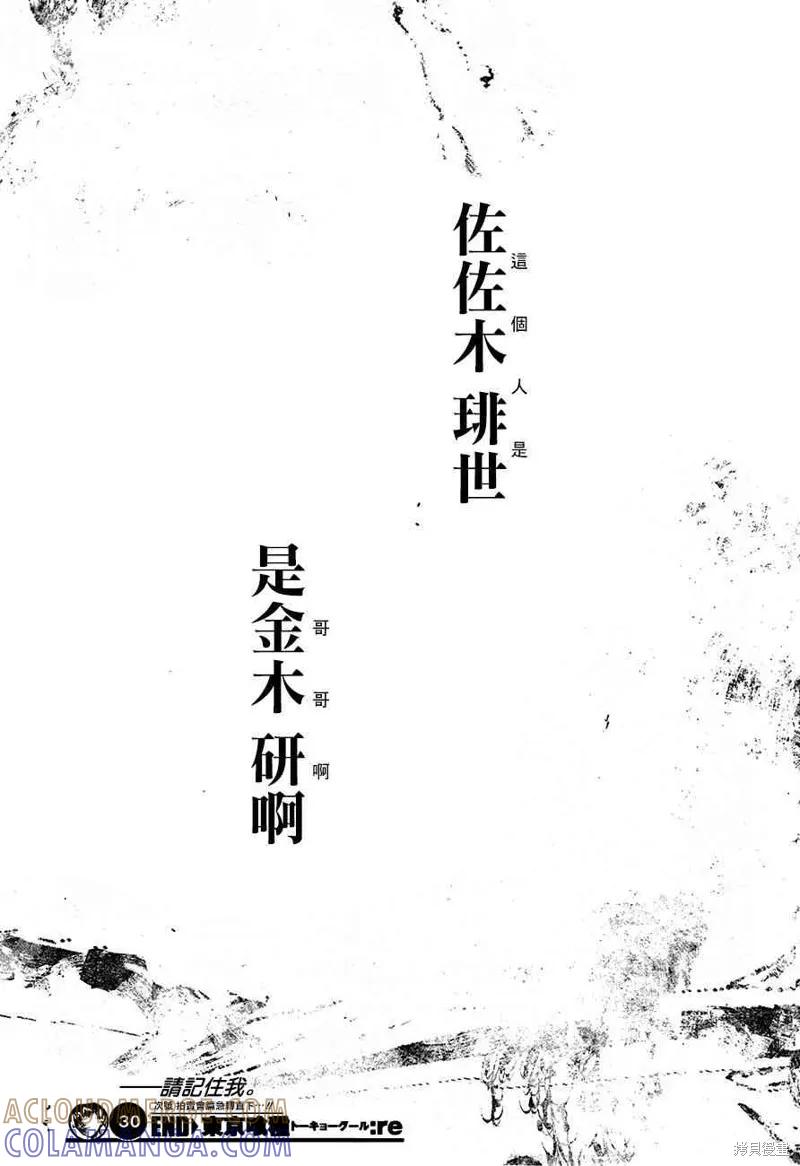 佐佐木 琲世
這個人是
是金木 研啊
哥哥啊
──請記住我。
次號 拍賣會篇急轉直下…!!
30 END 東京喰種トーキョーグール:re
ACLOUDMERGE.COM
COLAMANGA.COM
拷貝漫畫